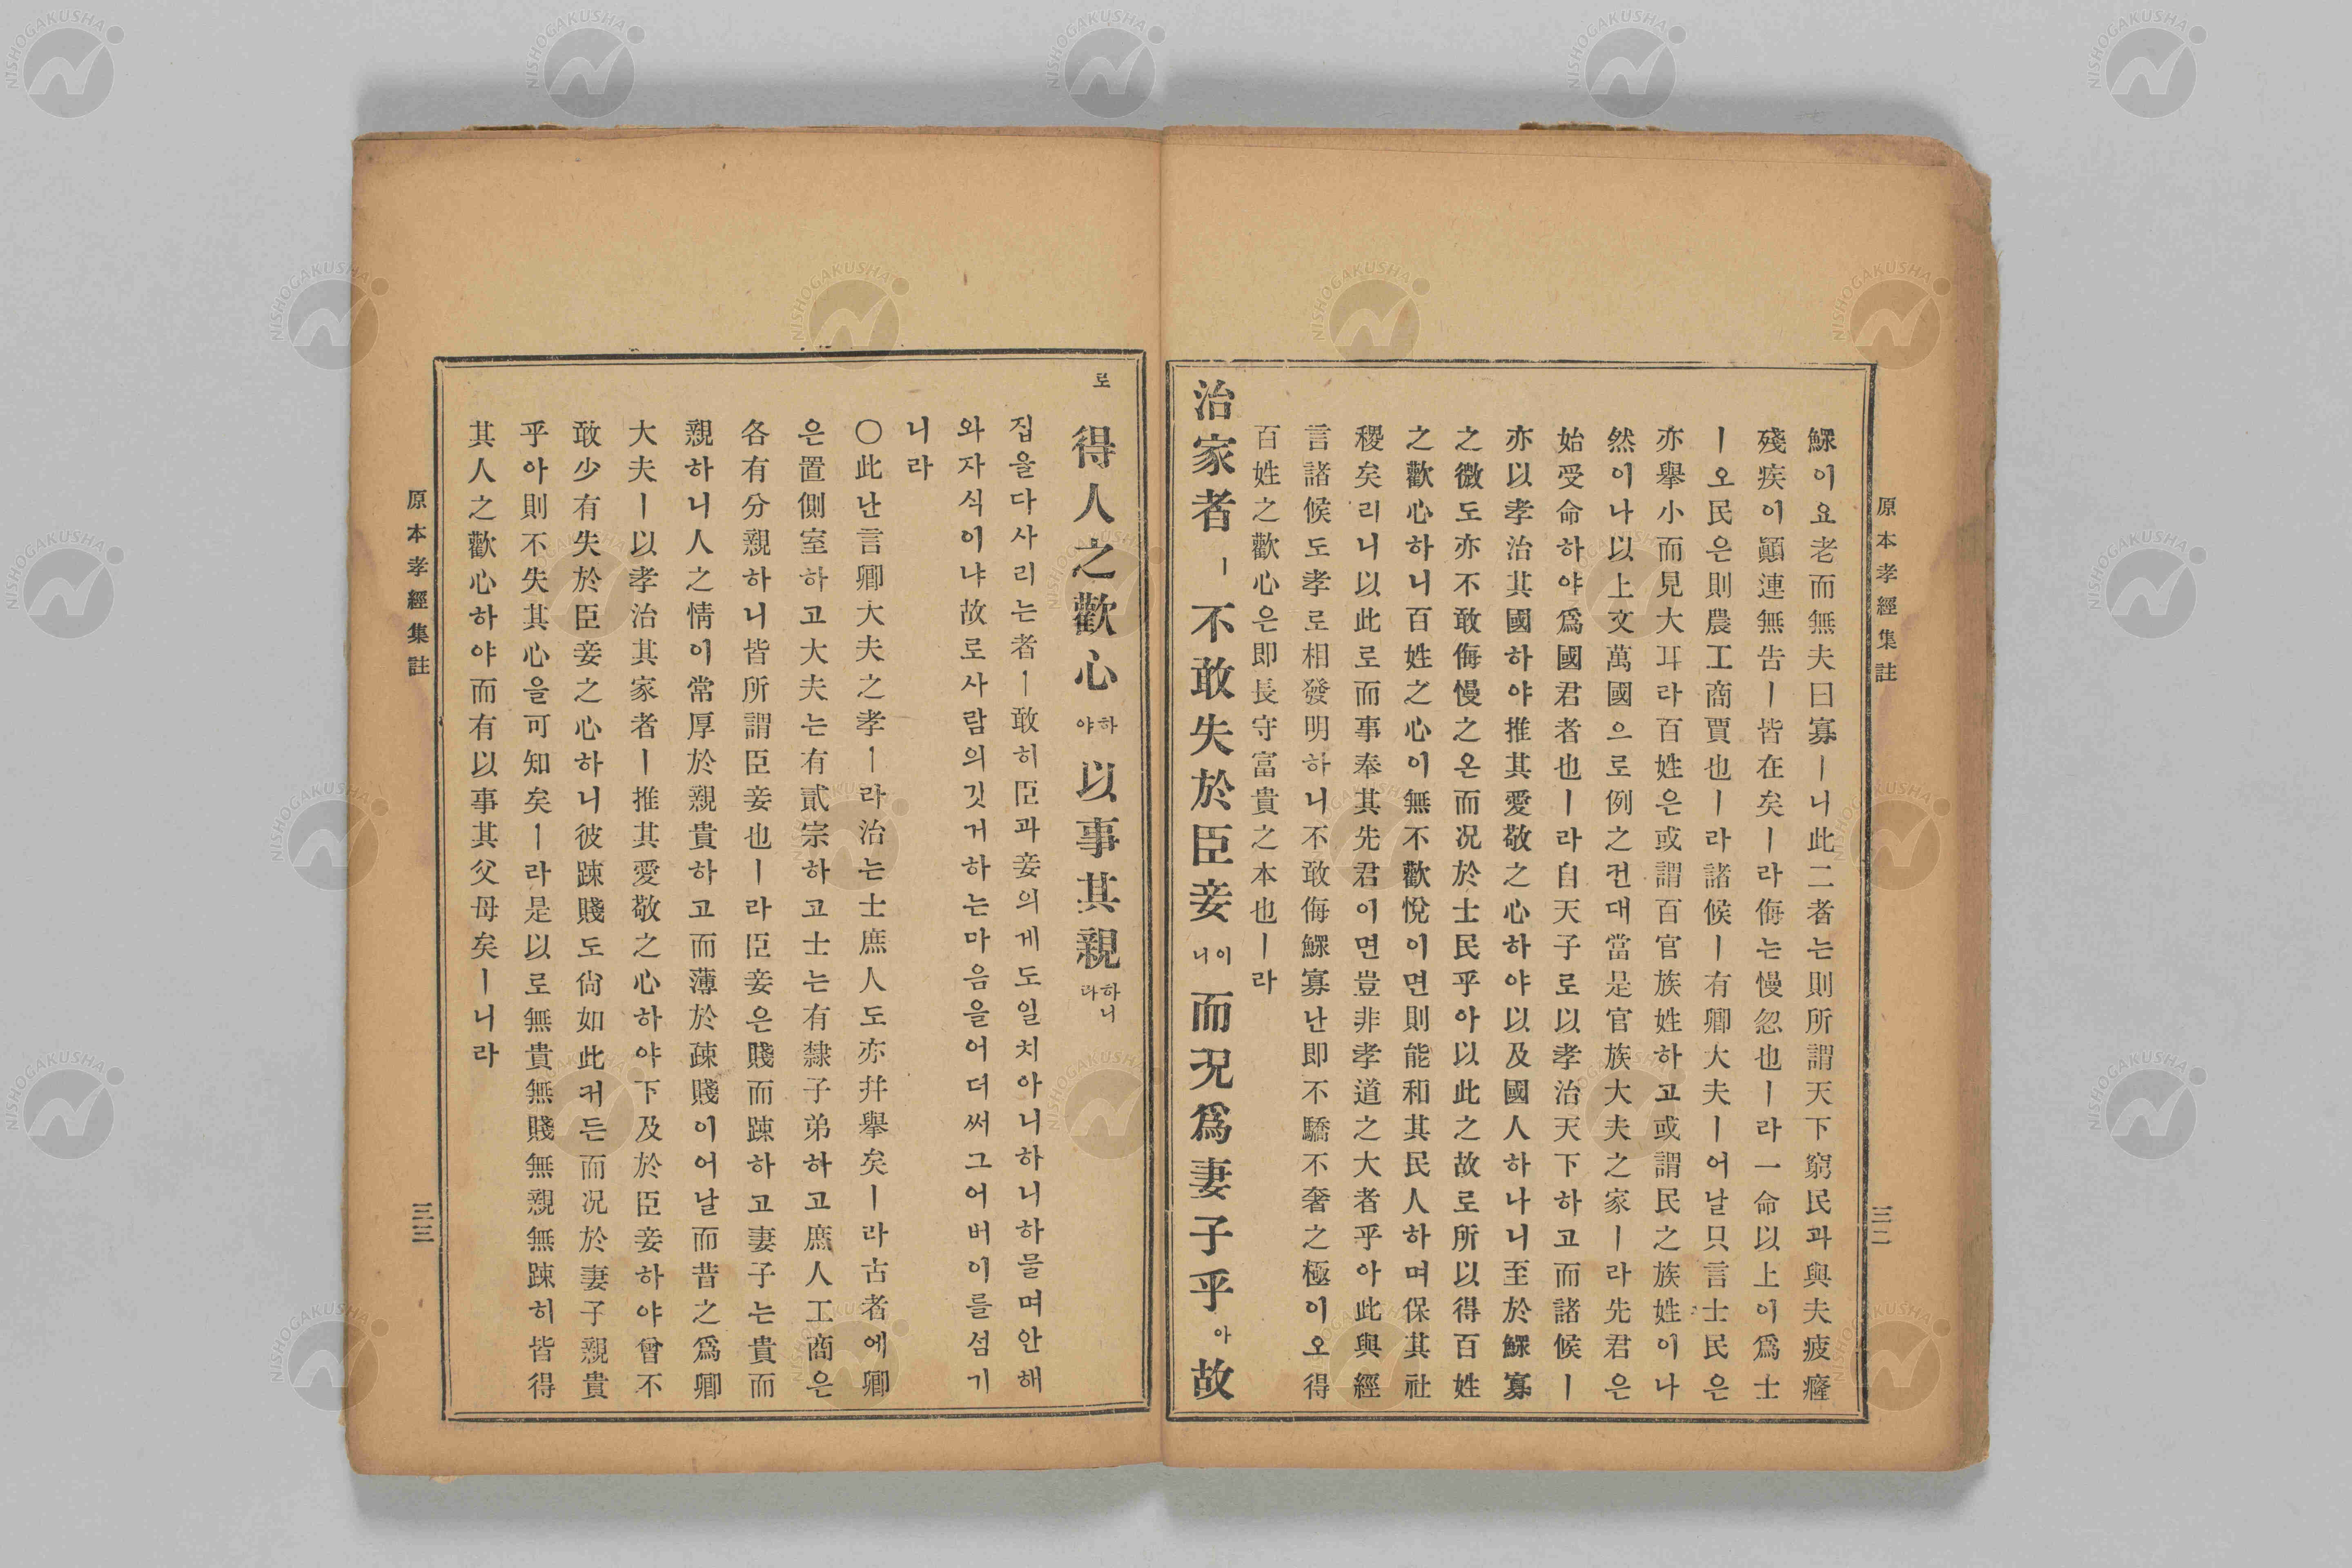 原本孝經集註
三二
鰥이요老而無夫曰寡ㅣ니此二者는則所謂天下窮民과與夫疲癃
殘疾이顚連無告ㅣ皆在矣ㅣ라侮는慢忽也ㅣ라一命以上이爲士
ㅣ오民은則農工商賈也ㅣ라諸候ㅣ有卿大夫ㅣ어날只言士民은
亦擧小而見大耳라百姓은或謂百官族姓하고或謂民之族姓이나
然이나以上文萬國으로例之컨대當是官族大夫之家ㅣ라先君은
始受命하야爲國君者也ㅣ라自天子로以孝治天下하고而諸候ㅣ
亦以孝治其國하야推其愛敬之心하야以及國人하나니至於鰥寡
之微도亦不敢侮慢之온而况於士民乎아以此之故로所以得百姓
之歡心하니百姓之心이無不歡悅이면則能和其民人하며保其社
稷矣리니以此로而事奉其先君이면豈非孝道之大者乎아此與經
言諸候도孝로相發明하니不敢侮鰥寡난即不驕不奢之極이오得
百姓之歡心은即長守富貴之本也ㅣ라
治家者ㅣ不敢失於臣妾이니而况爲妻子乎아故
로得人之歡心하야以事其親하니라
집을다사리는者ㅣ敢히臣과妾의게도일치아니하니하믈며안해
와자식이냐故로사람의깃거하는마음을어더써그어버이를섬기
니라
〇此난言卿大夫之孝ㅣ라治는士庶人도亦幷擧矣ㅣ라古者에卿
은置側室하고大夫는有貳宗하고士는有隸子弟하고庶人工商은
各有分親하니皆所謂臣妾也ㅣ라臣妾은賤而踈하고妻子는貴而
親하니人之情이常厚於親貴하고而薄於疎賤이어날而昔之爲卿
大夫ㅣ以孝治其家者ㅣ推其愛敬之心하야下及於臣妾하야曾不
敢少有失於臣妾之心하니彼踈賤도尙如此커든而况於妻子親貴
乎아則不失其心을可知矣ㅣ라是以로無貴無賤無親無踈히皆得
其人之歡心하야而有以事其父母矣ㅣ니라
原本孝經集註
三三
NISHOGAKUSHA